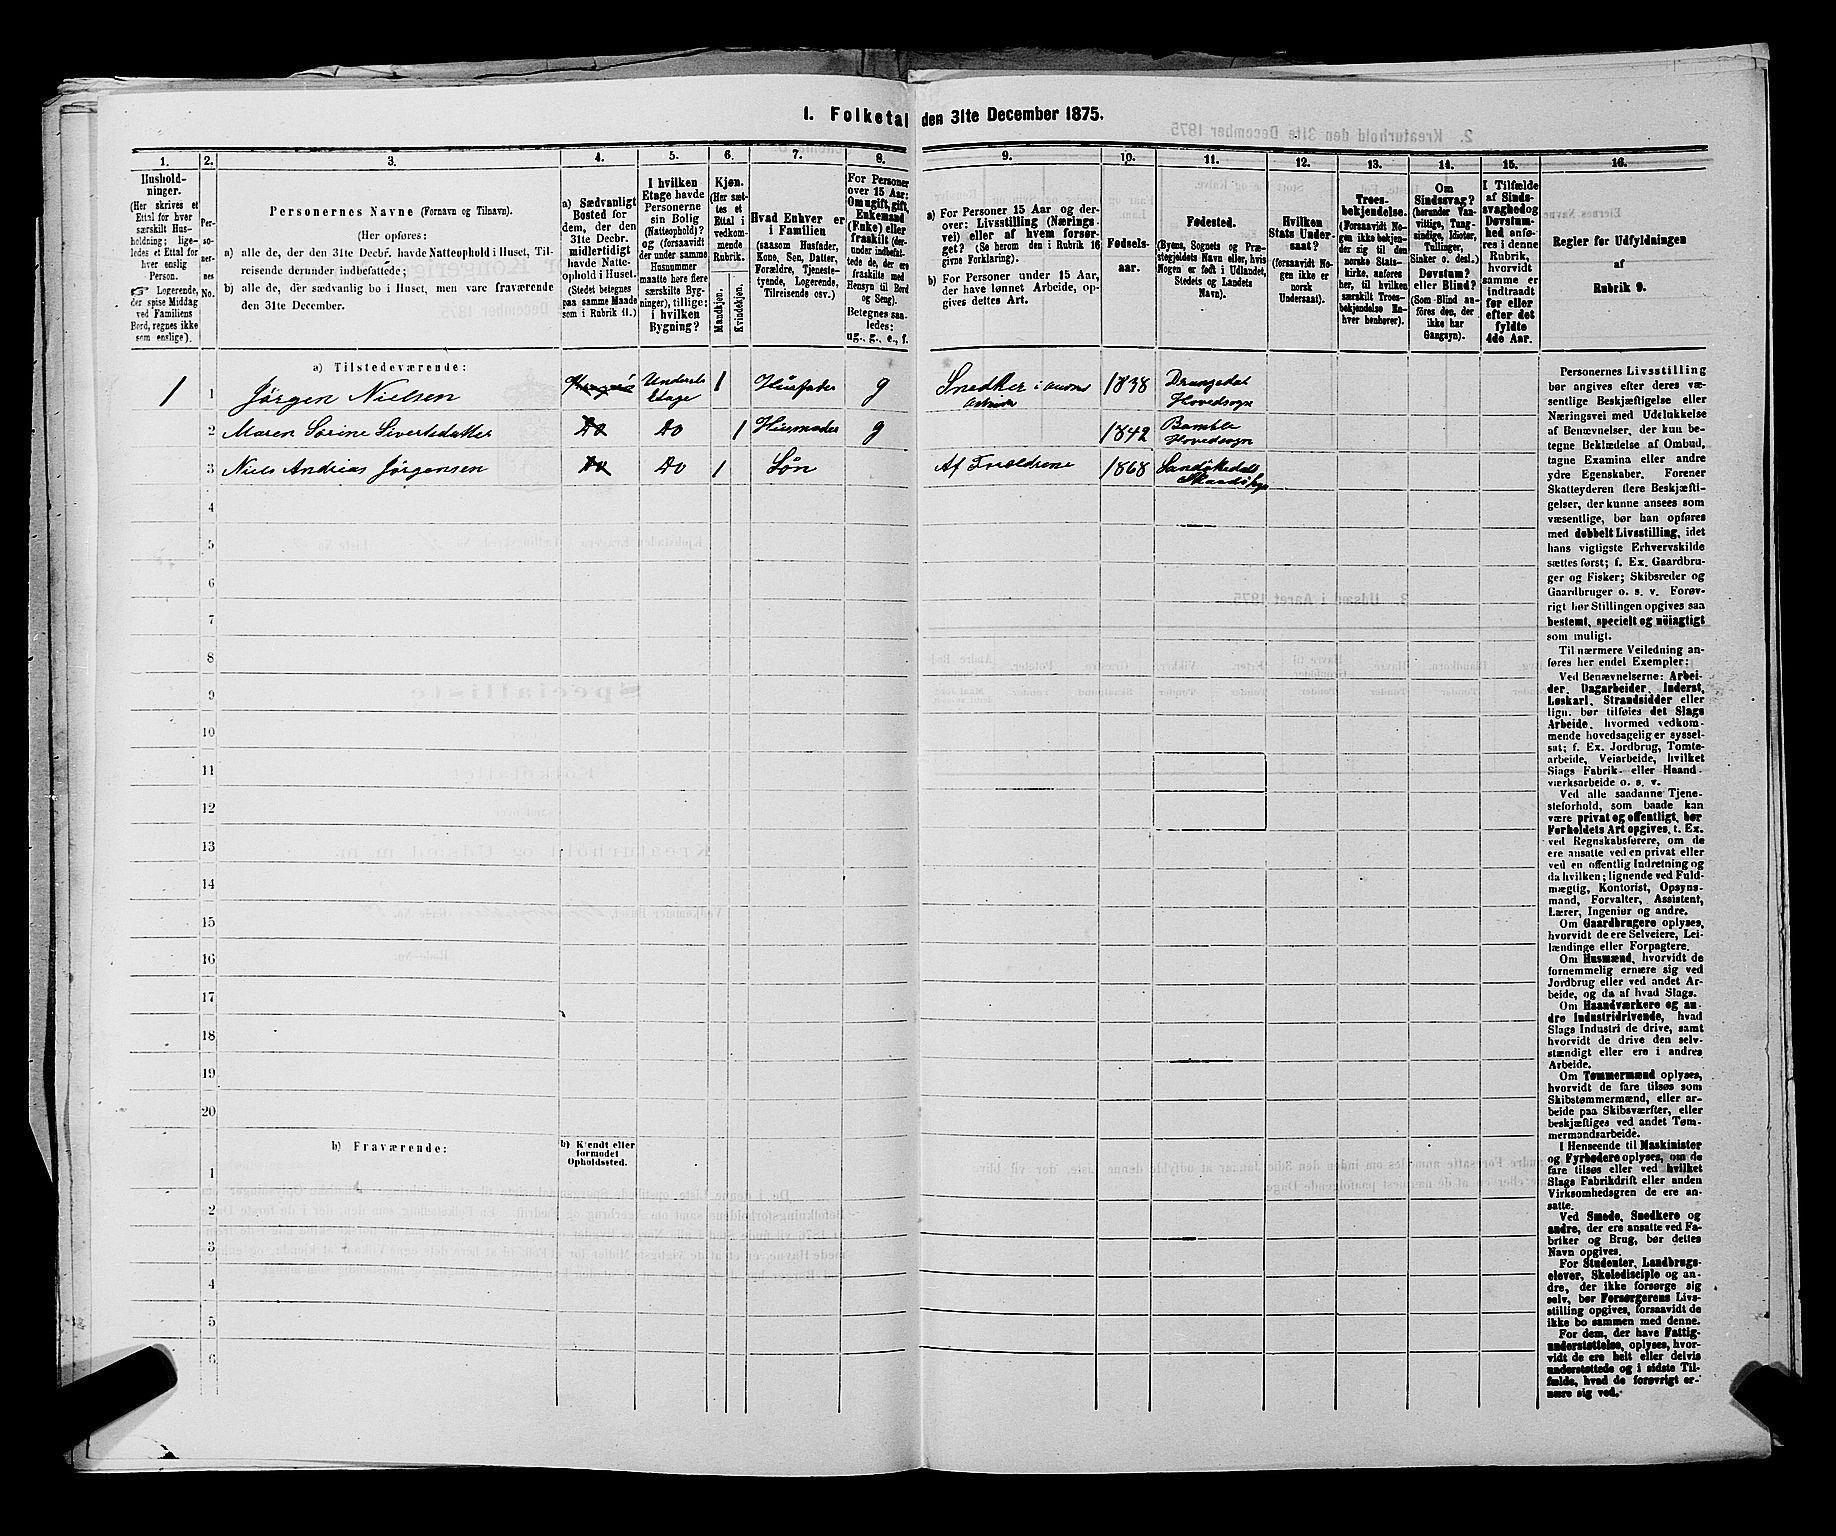 1. Folketal den 31te December 1875.
1.
2.
3.
4.
5.
6.
7.
8.
9.
10.
11.
12.
13.
14.
15.
16.
Hushold-
ninger.
(Her skrives et
Ettal for hver
særskilt Hus-
holdning; lige-
ledes et Ettal for
hver enslig
Person.
☞ Logerende,
der spise Middag
ved Familiens
Bord, regnes ikke
som enslige).
Per-
so-
ner-
nes
No.
Personernes Navne (Fornavn og Tilnavn).
(Her opføres:
a) alle de, der den 31te Decbr. havde Natteophold i Huset, Til-
reisende derunder indbefattede;
b) alle de, der sædvanlig bo i Huset, men vare fraværende
den 31te December.
a) Sædvanligt
Bosted for
dem, der den
31te Decbr.
midlertidigt
havde Natte-
ophold i Huset.
(Stedet betegnes
paa samme Maade
som i Rubrik 11.)
I hvilken
Etage havde
Personerne
sin Bolig
(Natteophold)?
og (forsaavidt
der under samme
Husnummer
maatte høre flere
særskilte Byg-
ninger), tillige:
i hvilken
Bygning?
Kjøn.
(Her sæt-
tes et
Ettal i
vedkom-
mende
Rubrik.
Mandkjøn.
Kvindekjøn.
Hvad Enhver er
i Familien
(saasom Husfader,
Kone, Søn, Datter,
Forældre, Tjeneste-
tyende, Logerende,
Tilreisende osv.)
For Personer
over 15 Aar:
Om ugift, gift,
Enkemand
(Enke) eller
fraskilt (der-
under indbefat-
tede de, der ere
fraskilte med
Hensyn til Bord
og Seng).
Betegnes saa-
ledes:
ug., g., e., f.
a) For Personer 15 Aar og der-
over: Livsstilling (Nærings-
vei) eller af hvem forsør-
get? (Se herom den i Rubrik 16
givne Forklaring).
b) For Personer under 15 Aar,
der have lønnet Arbeide, op-
gives dettes Art.
Fødsels-
aar.
Fødested.
(Byens, Sognets og Præ-
stegjeldets Navn eller, hvis
Nogen er født i Udlandet,
Stedets og Landets
Navn).
Hvilken
Stats Under-
saat?
(forsaavidt No-
gen ikke er
norsk
Undersaat).
Troes-
bekjendelse.
(Forsaavidt No-
gen ikke bekjen-
der sig til den
norske Stats-
kirke, anføres
her, til hvilken
særskilt Troes-
bekjendelse En-
hver benhører).
Om
Sindssvag?
(herunder Van-
vittige, Tung-
sindige, Idioter,
Tullinger,
Sinker o. desl.)
Døvstum?
eller Blind?
(Som Blind an-
føres den, der
ikke har
Gangsyn).
I Tilfælde
af Sinds-
svaghed og
Døvstum-
hed anfø-
res i denne
Rubrik,
hvorvidt
samme er
indtraadt
før eller
efter det
fyldte
4de Aar.
Regler for Udfyldningen
af
Rubrik 9.
a) Tilstedeværende:
1 1 Jørgen Nielsen Underste Etage 1 Husfader g Snedker i andres Arbeide 1838 Drangedal Hovedsogn
2 Maren Sørine Sivertsdatter Do Do 1 Husmoder g 1842 Bamble Hovedsogn
3 Niels Andreas Jørgensen Do Do 1 Søn Af Forældrene 1868 Sandøkedals
4
5
6
7
8
9
10
11
12
13
14
15
16
17
18
19
20
b) Fraværende:
b) Kjendt eller
formodet
Opholdssted.
1
2
3
4
5
6
Personernes Livsstilling
bør angives efter deres væ-
sentlige Beskjæftigelse eller
Næringsvei med Udelukkelse
af Benævnelser, der kun be-
tegne Beklædelse af Ombud,
tagne Examina eller andre
ydre Egenskaber. Forener
Skatteyderen flere Beskjæfti-
gelser, der kunne ansees som
væsentlige, bør han opføres
med dobbelt Livsstilling, idet
hans vigtigste Erhvervskilde
sættes først; f. Ex. Gaardbru-
ger og Fisker; Skibsreder og
Gaardbruger o. s. v. Forøv-
rigt bør Stillingen opgives saa
bestemt, specielt og nöiagtigt
som muligt.
Til nærmere Veiledning an-
føres her endel Exempler:
Ved Benævnelserne: Arbei-
der, Dagarbeider, Inderst,
Løskarl, Strandsidder eller
lign. bør tilføies det Slags
Arbeide, hvormed vedkom-
mende hovedsagelig er syssel-
sat; f. Ex. Jordbrug, Tomte-
arbeide, Veiarbeide, hvilket
Slags Fabrik- eller Haand-
værksarbeide o. s. v.
Ved alle saadanne Tjene-
steforhold, som baade kan
være privat og offentligt, bør
Forholdets Art opgives, t. Ex.
ved Regnskabsførere, om de
ere ansatte ved en privat eller
ved en offentlig Indretning og
da hvilken; lignende ved Fuld-
mægtig, Kontorist, Opsyns-
mand, Forvalter, Assistent,
Lærer, Ingeniør og andre.
Om Gaardbrugere oplyses,
hvorvidt de ere Selveiere, Lei-
lændinge eller Forpagtere.
Om Husmænd, hvorvidt de
fornemmelig ernære sig ved
Jordbrug eller ved andet Ar-
beide, og da af hvad Slags.
Om Haandværkere og an-
dre Industridrivende, hvad
Slags Industri de drive, samt
hvorvidt de drive den selv-
stændigt eller ere i andres
Arbeide.
Om Tømmermænd oplyses,
hvorvidt de fare tilsøs som
Skibstømmermænd, eller ar-
beide paa Skibsværfter, eller
beskjæftiges ved andet Tøm-
mermandsarbeide.
I Henseende til Maskinister
og Fyrbødere oplyses, om de
fare tilsøs eller ved hvilket
Slags Fabrikdrift eller anden
Virksomhedsgren de ere an-
satte.
Ved Smede, Snedkere og
andre, der ere ansatte ved Fa-
briker og Brug, bør dettes
Navn opgives.
For Studenter, Landbrugs-
elever, Skoledisciple og an-
dre, der ikke forsørge sig
selv, bør Forsørgerens Livs-
stilling opgives, forsaavidt de
ikke bo sammen med denne.
For dem, der have Fattig-
understøttelse, oplyses, hvor-
vidt de ere helt eller delvis
understøttede og i sidste Til-
fælde, hvad de forøvrigt er-
nære sig ved.